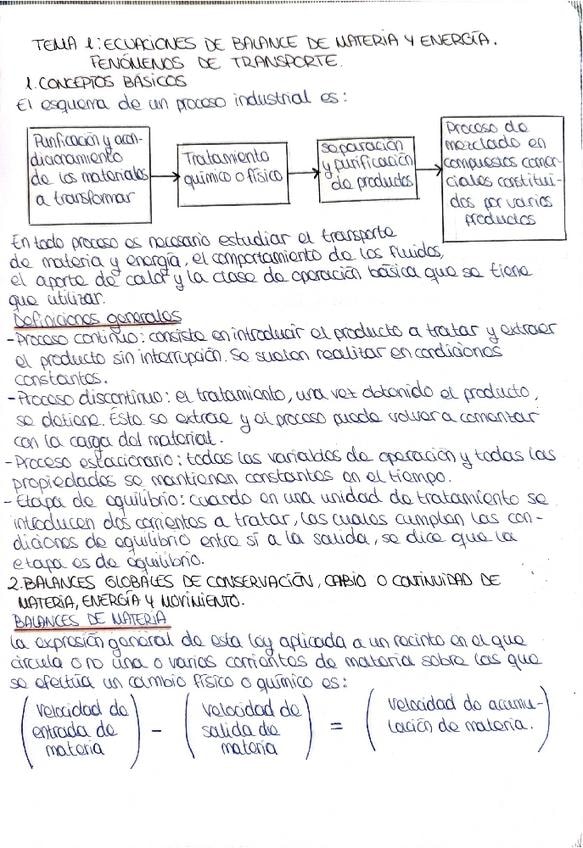 TEMA 1: ECUACIONES DE BALANCE DE MATERIA Y ENERGÍA.
FENÓMENOS DE TRANSPORTE.
1. CONCEPTOS BÁSICOS
El esquema de un proceso industrial es:
Purificación y acon-
dicionamiento
de los materiales
a transformar
Tratamiento
químico o físico
separación
y purificación
de productos
Proceso de
mezclado en
compuestos comer-
ciales constitui-
dos por varios
productos
En todo proceso es necesario estudiar el transporte
de materia y energía, el comportamiento de los fluidos,
el aporte de calor y la clase de operación básica que se tiene
que utilizar.
Definiciones generales
-Proceso continuo: consiste en introducir el producto a tratar y extraer
el producto sin interrupción. Se suelen realizar en condiciones
constantes.
-Proceso discontinuo: el tratamiento, una vez obtenido el producto,
se detiene. Esto se extrae y el proceso puede volver a comenzar
con la carga del material.
-Proceso estacionario: todas las variables de operación y todas las
propiedades se mantienen constantes en el tiempo.
-Etapa de equilibrio: cuando en una unidad de tratamiento se
introducen dos corrientes a tratar, las cuales cumplen las con-
diciones de equilibrio entre sí a la salida, se dice que la
etapa es de equilibrio.
2. BALANCES GLOBALES DE CONSERVACIÓN, CABIO O CONTINUIDAD DE
MATERIA, ENERGÍA Y MOVIMIENTO.
BALANCES DE MATERIA
La expresión general de esta ley aplicada a un recinto en el que
circula o no una o varios corrientes de materia sobre las que
se efectúa un cambio físico o químico es:
(velocidad de entrada de materia) - (velocidad de salida de materia) = (velocidad de acumu-lación de materia.)